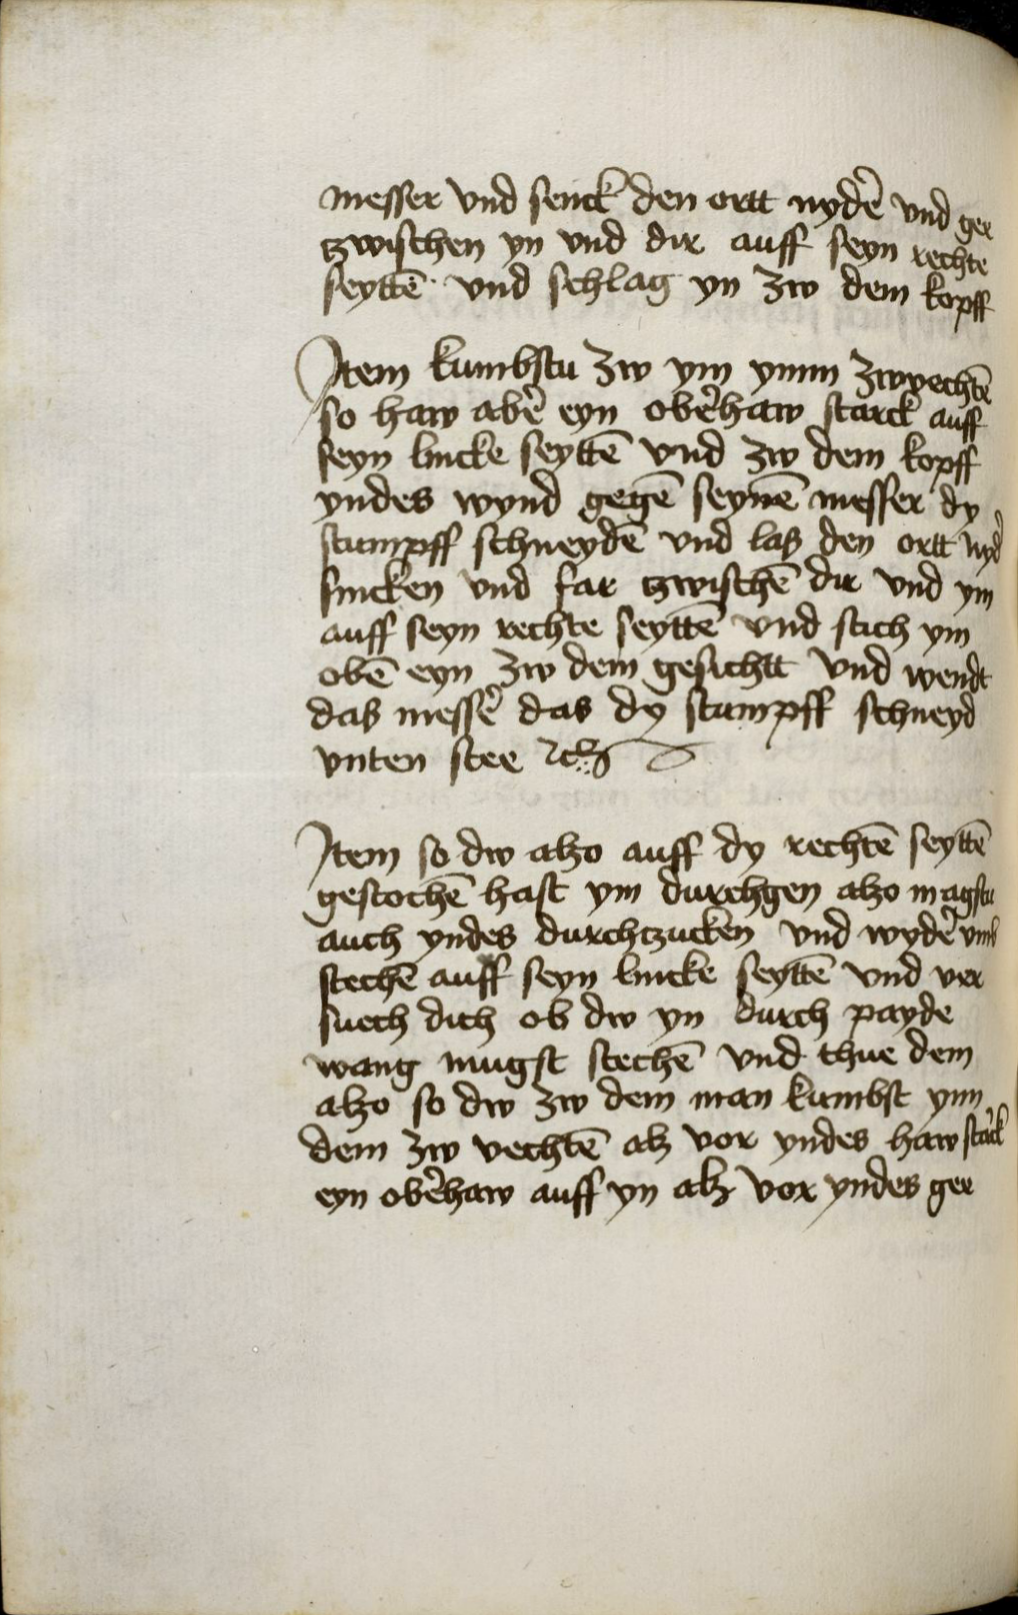 messer vnd senck den ortt nydẽ vnd ger
tzwischen yn vnd dir auff seyn rechte
seyttẽ vnd schlag yn zw dem kopff
Item kumbstu zw ym ynnn zwvechtẽ
so haw abẽ eyn obẽhaw starck auff
seyn lincke seyttẽ vnd zw dem kopff
yndes wynd gegẽ seynẽ messer dy
stumpff schneydẽ vnd las den ortt nyd
sincken vnd far tzwischẽ dir vnd ym
auff seyn rechte seyttẽ vnd stich ym
obẽ eyn zw dem gesichtt vnd wendt
das messẽ das dy stumpff schneyd
vnten stee ⁊cꝫ
Item so dw alzo auff dy rechtẽ seyttẽ
gestochẽ hast ym durchgen alzo magstu
auch yndes durchtzucken vnd wydẽ vmb
stechẽ auff seyn lincke seyttẽ vnd ver
suech dich ob dw yn durch payde
wang mugst stechẽ vnd thue dem
alzo so dw zw dem man kumbst ynn
dem zw vechtẽ alz vor yndes haw starck
eyn obẽhaw auff yn alz vor yndes ger